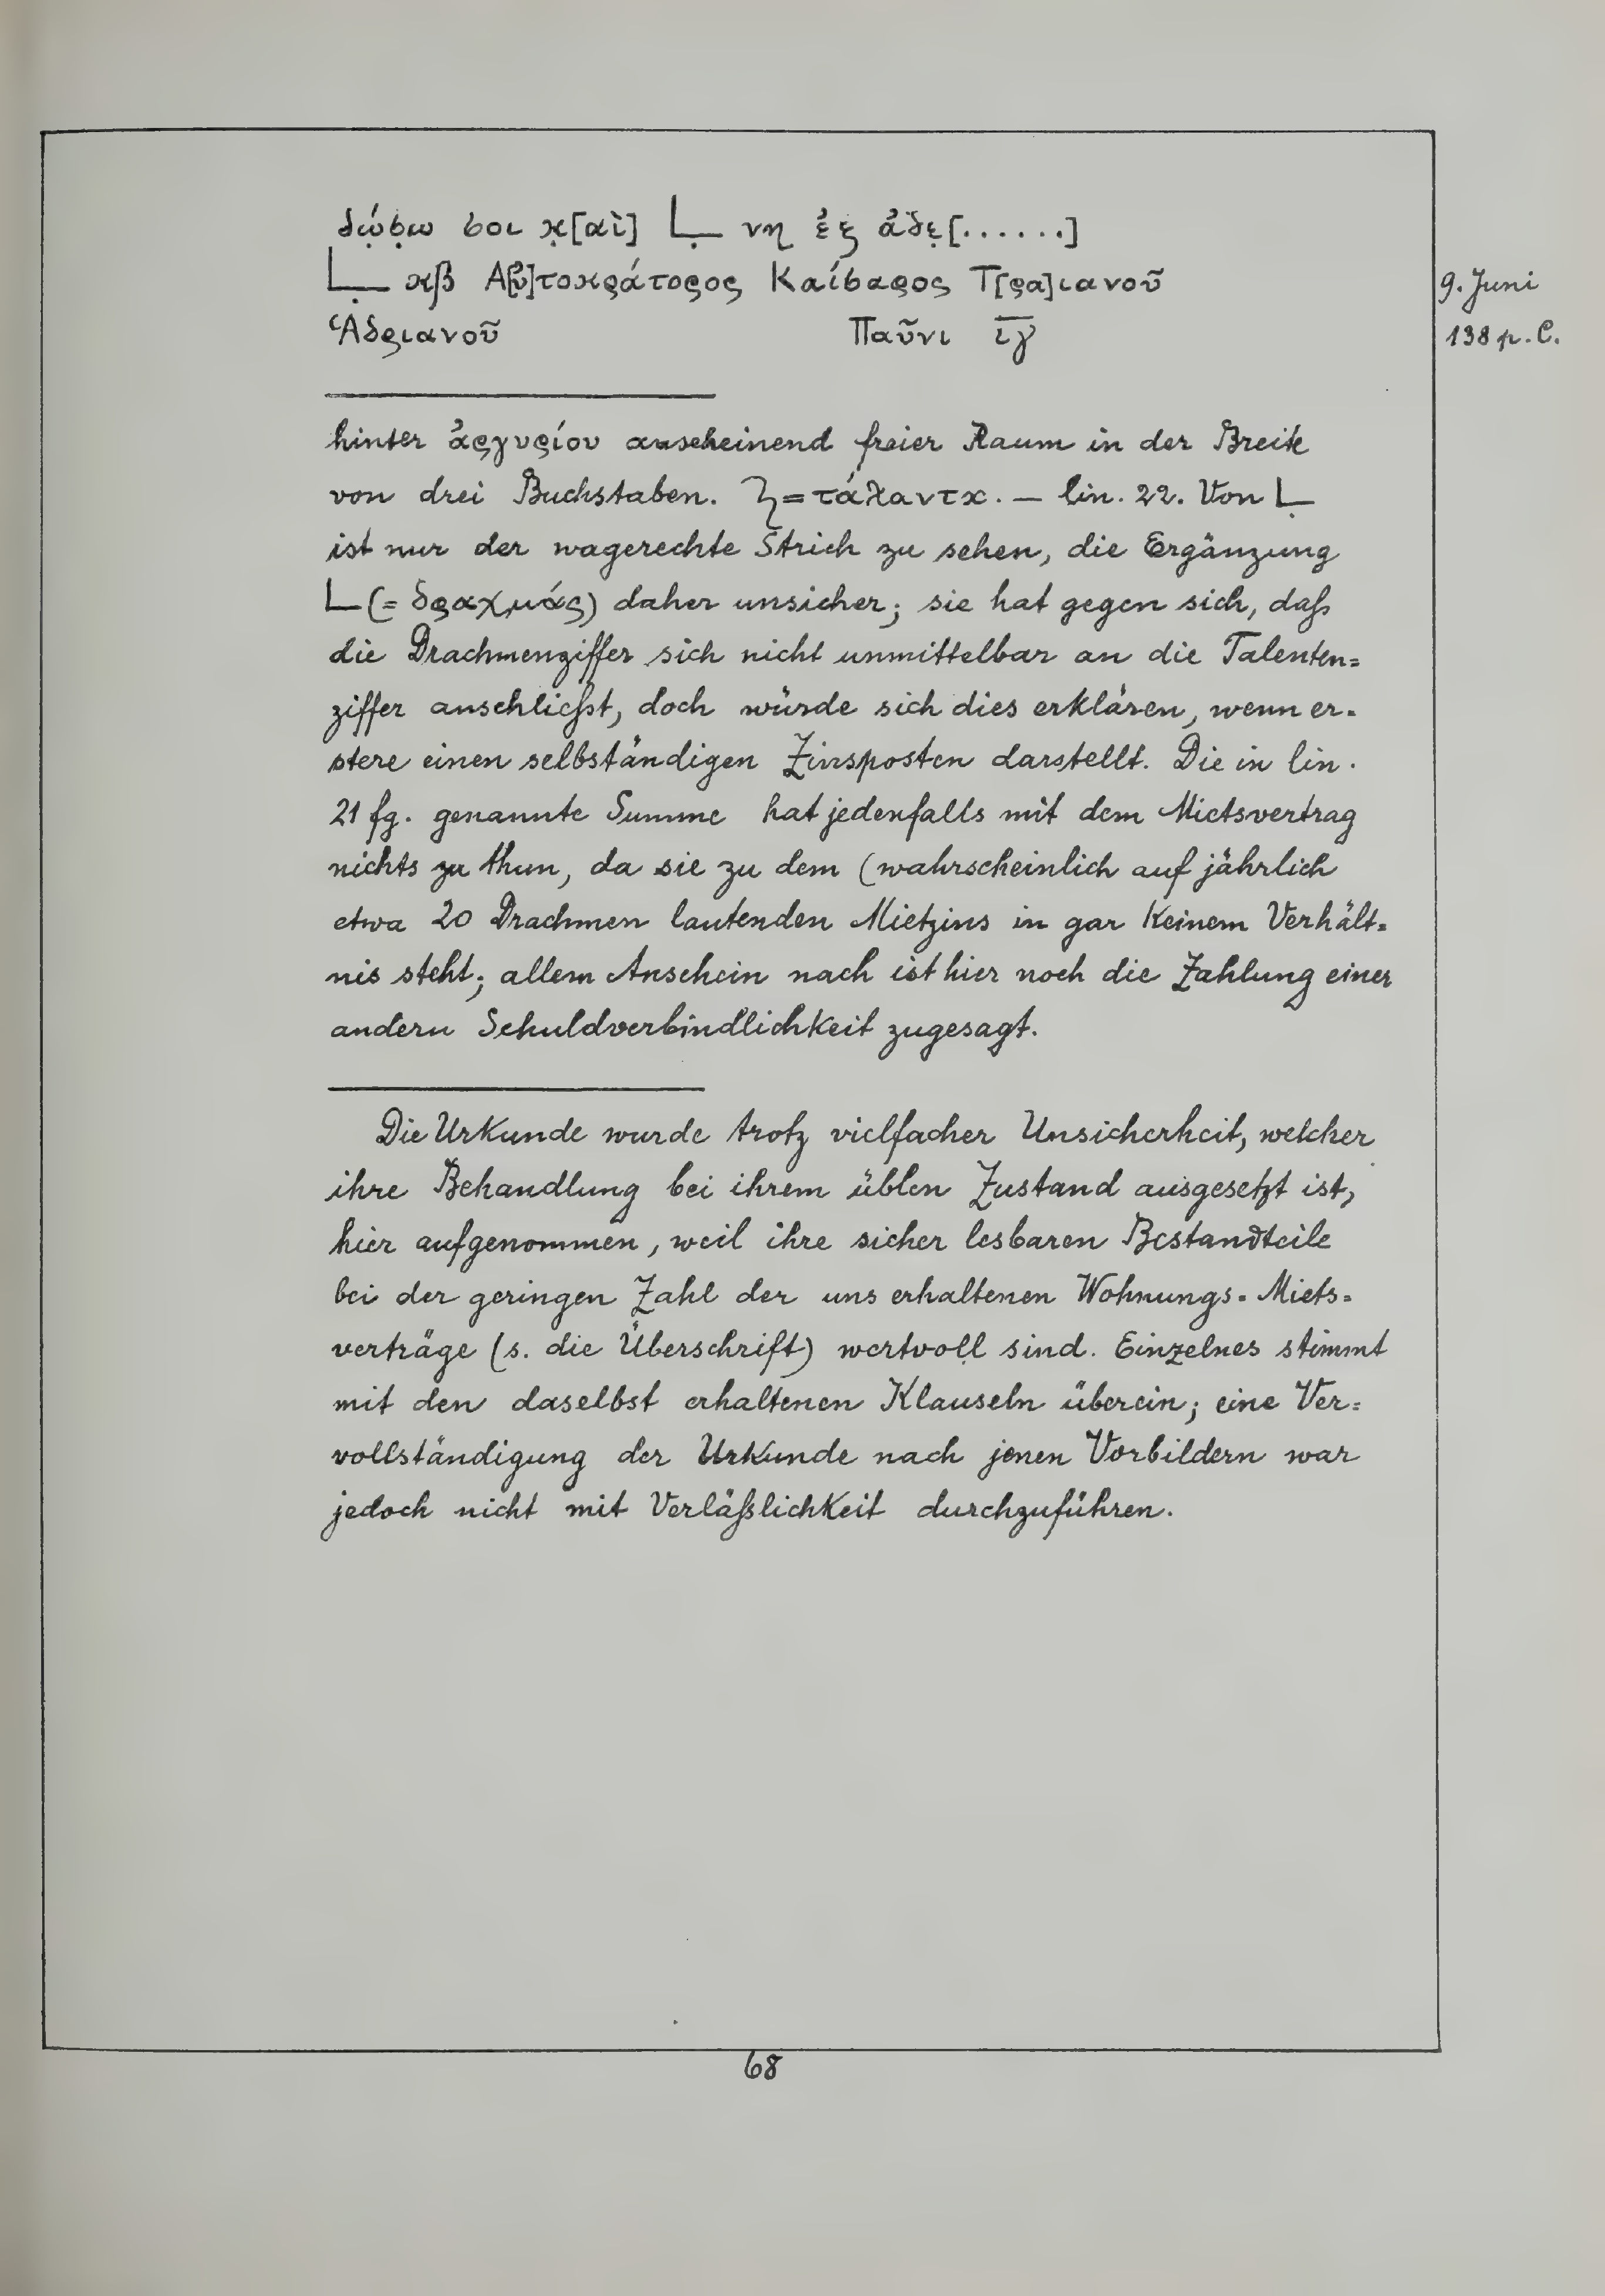 δώ̣σ̣ω σοι κ̣[αὶ] Ḷ νη ἐξ ἀδε̣[......]
Ḷ κβ Α[ὐ]τοκράτορος Καίσαρος Τ[ρα]ιανοῦ
Ἁδριανοῦ Παῦνι ι̅γ̅
9. Juni
138 p. C.
hinter ἀργυρίου anscheinend freier Raum in der Breite
von drei Buchstaben. ʅ = τάλαντα. — lin. 22. Von Ḷ
ist nur der wagerechte Strich zu sehen, die Ergänzung
L (= δραχμάς) daher unsicher; sie hat gegen sich, daß
die Drachmenziffer sich nicht unmittelbar an die Talenten=
ziffer anschließt, doch würde sich dies erklären, wenn er=
stere einen selbständigen Zinsposten darstellt. Die in lin.
21 fg. genannte Summe hat jedenfalls mit dem Mietsvertrag
nichts zu thun, da sie zu dem (wahrscheinlich auf jährlich
etwa 20 Drachmen lautenden Mietzins in gar keinem Verhält=
nis steht; allem Anschein nach ist hier noch die Zahlung einer
andern Schuldverbindlichkeit zugesagt.
Die Urkunde wurde trotz vielfacher Unsicherheit, welcher
ihre Behandlung bei ihrem üblen Zustand ausgesetzt ist,
hier aufgenommen, weil ihre sicher lesbaren Bestandteile
bei der geringen Zahl der uns erhaltenen Wohnungs=Miets=
verträge (s. die Überschrift) wertvoll sind. Einzelnes stimmt
mit den daselbst erhaltenen Klauseln überein; eine Ver=
vollständigung der Urkunde nach jenen Vorbildern war
jedoch nicht mit Verläßlichkeit durchzuführen.
68